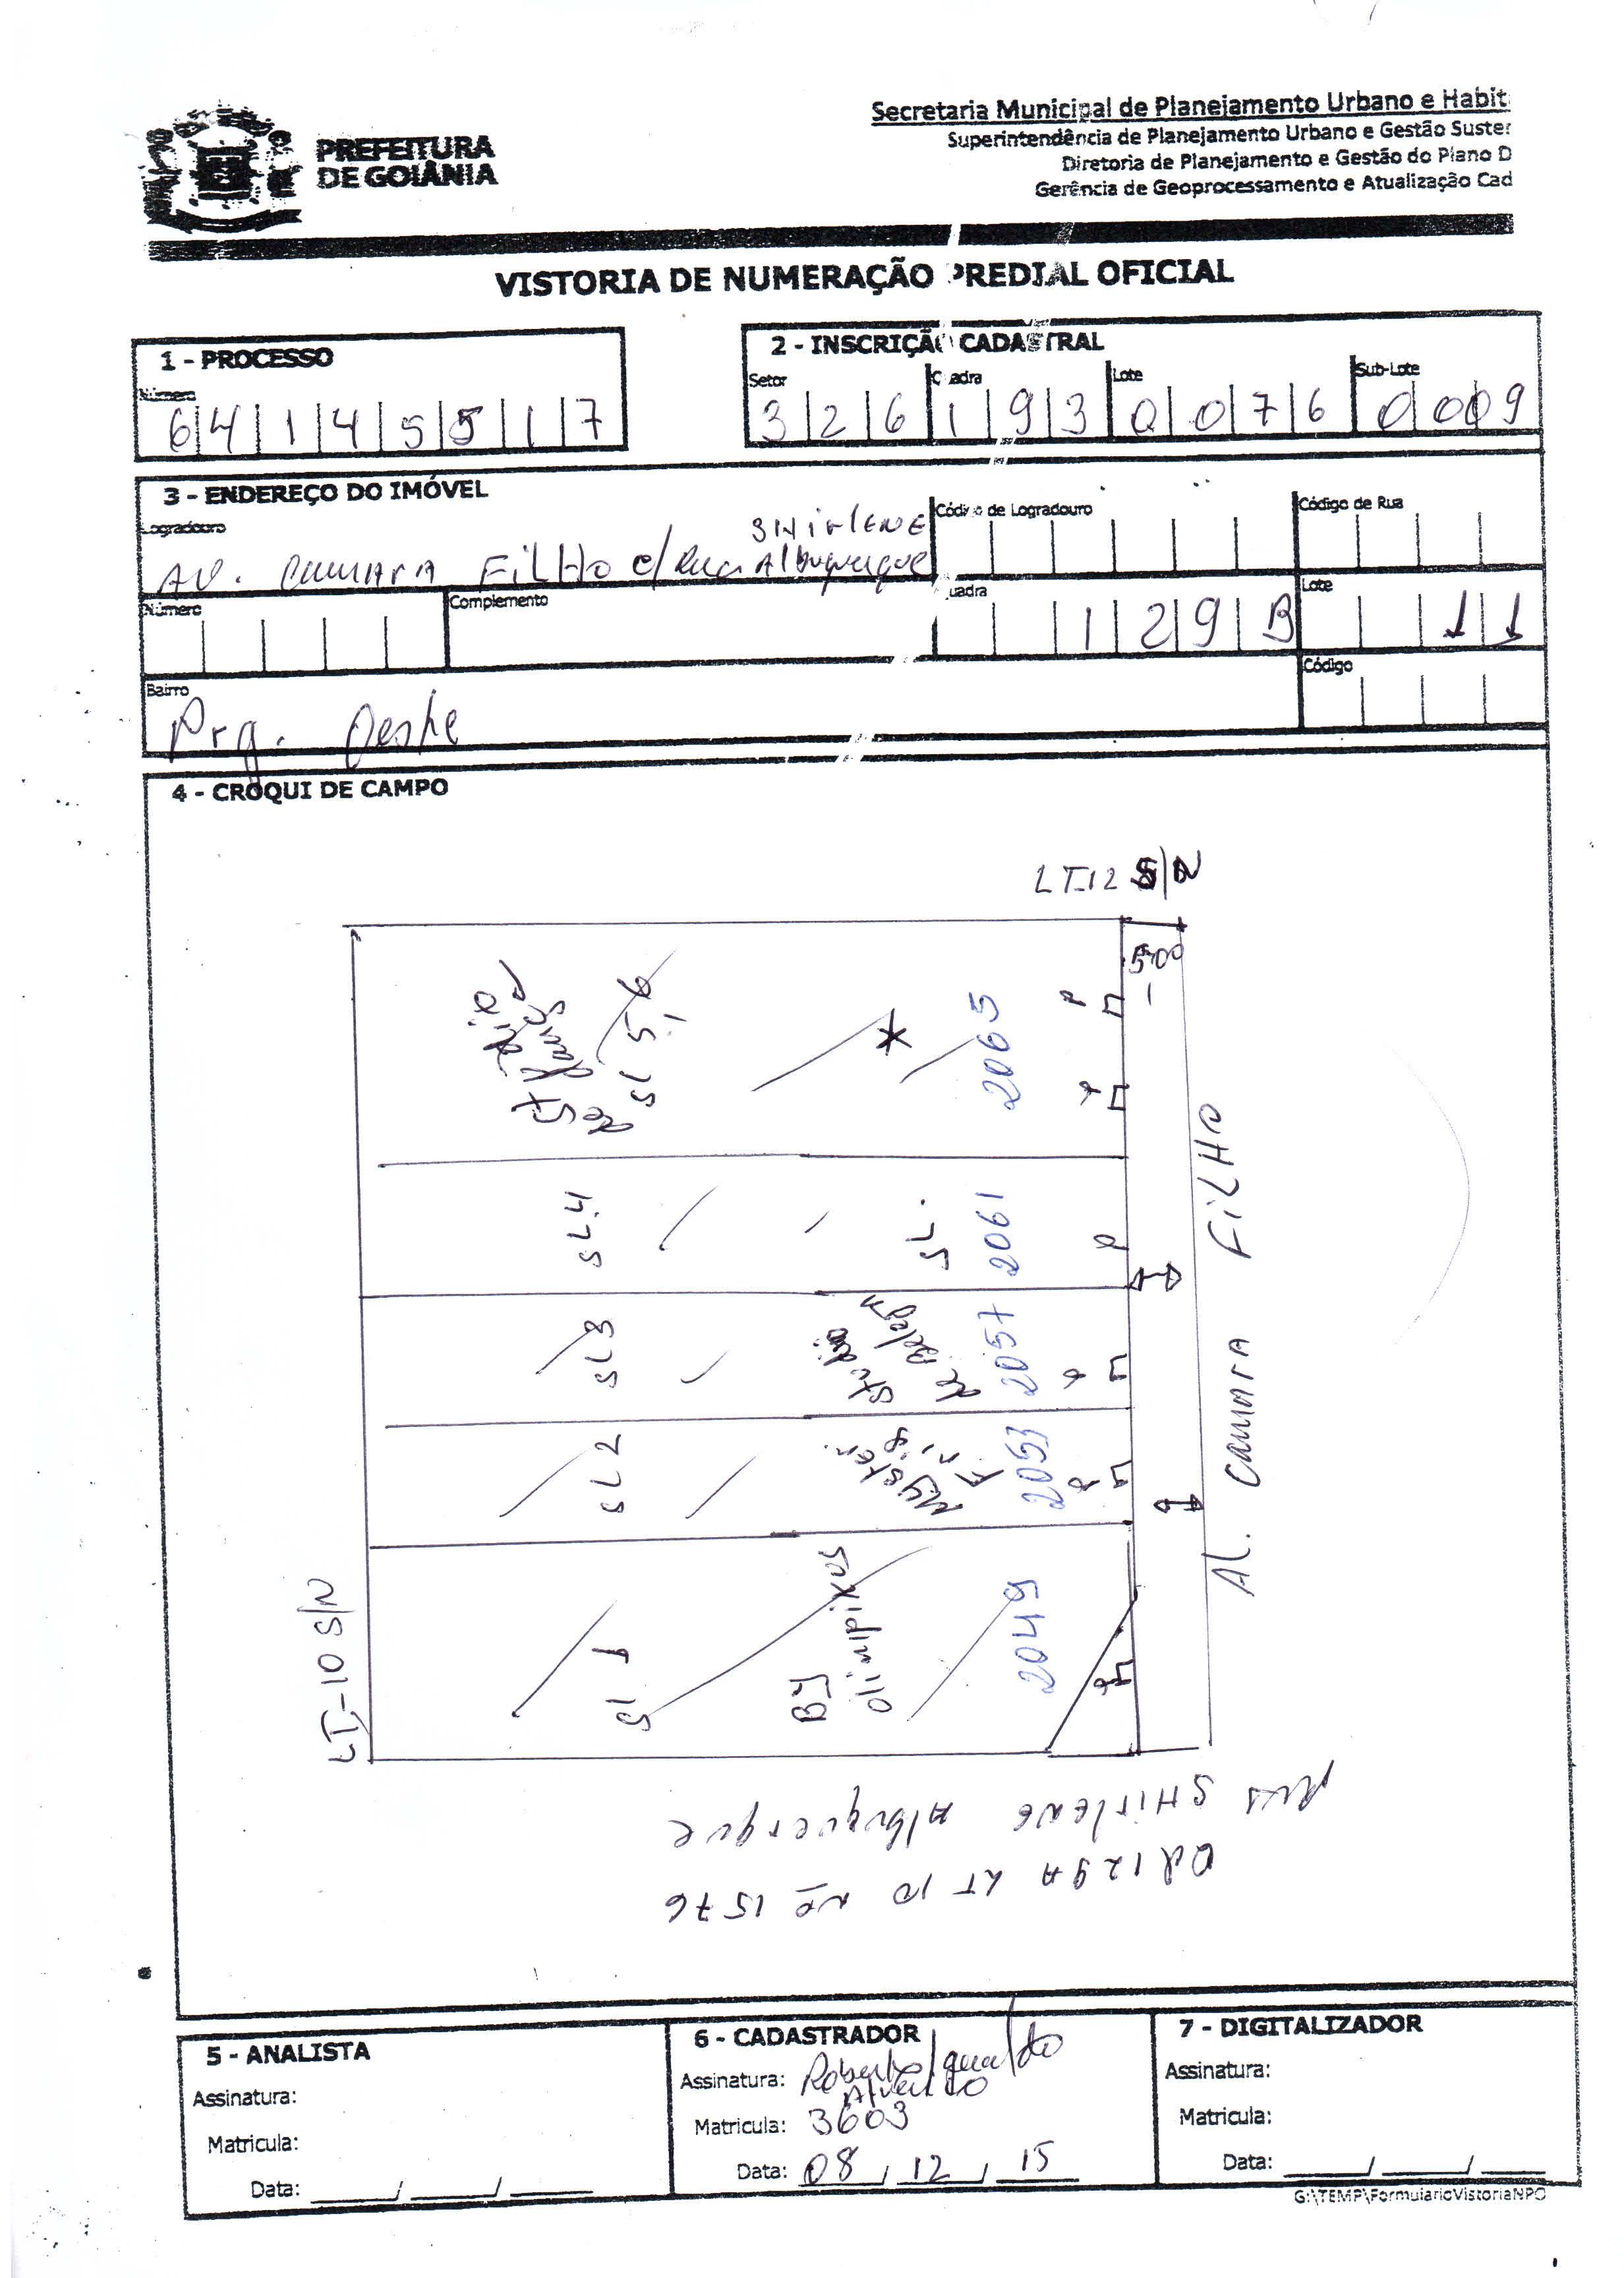 PREFEITURA
DE GOIÂNIA
Secretaria Municipal de Planejamento Urbano e Habit
Superintendência de Planejamento Urbano e Gestão Suster
Diretoria de Planejamento e Gestão do Plano D
Gerência de Geoprocessamento e Atualização Cad
VISTORIA DE NUMERAÇÃO PREDIAL OFICIAL
1 - PROCESSO
Número
6 4 1 4 5 5 1 7
2 - INSCRIÇÃO CADASTRAL
Setor Quadra Lote Sub-Lote
3 2 6 1 9 3 0 0 7 6 0 0 0 9
3 - ENDEREÇO DO IMÓVEL
Logradouro
SHirlENE
AV. CAMARA FILHO c/ Rua Albuquerque
Código de Logradouro
Código de Rua
Número
Complemento
Quadra
1 2 9 B
Lote
1 1
Bairro
Prq. Oeste
Código
4 - CROQUI DE CAMPO
LT-12 S/N
5-00
Studio
de dança
SL 5 6
2065
SL.4
SL.
2061
SL 3
Studio
de Beleza
2057
SL 2
2053
SL 1
BJ
Olimpikus
2049
LT-10 S/N
AL. CAMARA FILHO
RUA SHIRLENE Albuquerque
Qd 129A LT 10 Nº 1576
5 - ANALISTA
Assinatura:
Matricula:
Data: ____/____/____
6 - CADASTRADOR
Assinatura: Roberto
Matricula: 3603
Data: 08 / 12 / 15
7 - DIGITALIZADOR
Assinatura:
Matricula:
Data: ____/____/____
G:\TEMP\FormularioVistoriaNPO